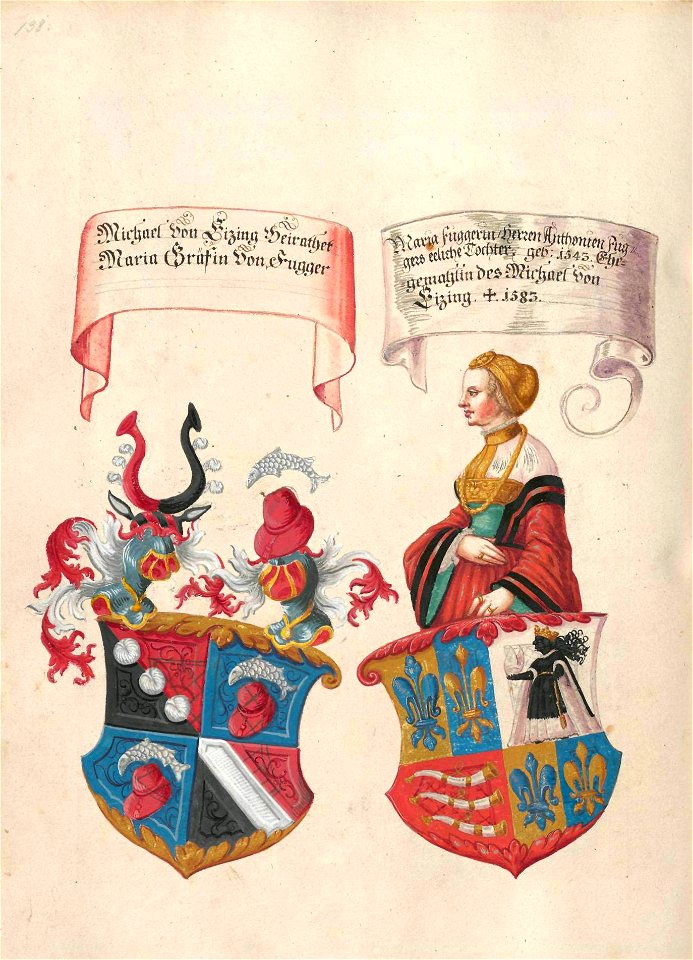 138.
Michael von Eizing Heirathet
Maria Gräfin von Fugger
Maria Fuggerin Herren Anthonien Fug-
gers ecliche Tochter, geb: 1543. Ehe-
gemahlin des Michael von
Eizing. ✝. 1583.